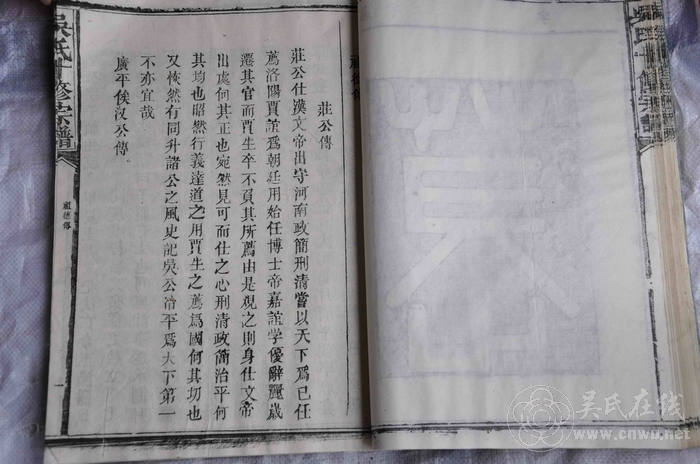 祖德傳
莊公傳
莊公仕漢文帝出守河南政簡刑清嘗以天下爲已任
薦洛陽賈誼爲朝廷用始任博士帝嘉誼學優辭麗歲
遷其官而賈生卒不負其所薦由是觀之則身仕文帝
出處何其正也宛然見可而仕之心刑清政簡治平何
其均也昭然行義達道之用賈生之薦爲國何其切也
又恢然有同升諸公之風史記吳公治平爲天下第一
不亦宜哉
廣平侯汉公傳
吳氏十修宗譜
祖德傳
一
吳氏十修宗譜
吴氏在线
www.cnwu.net